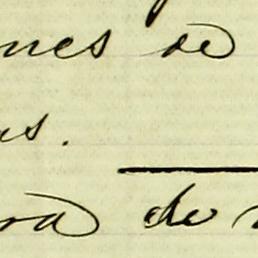 nes de
as.
ra de